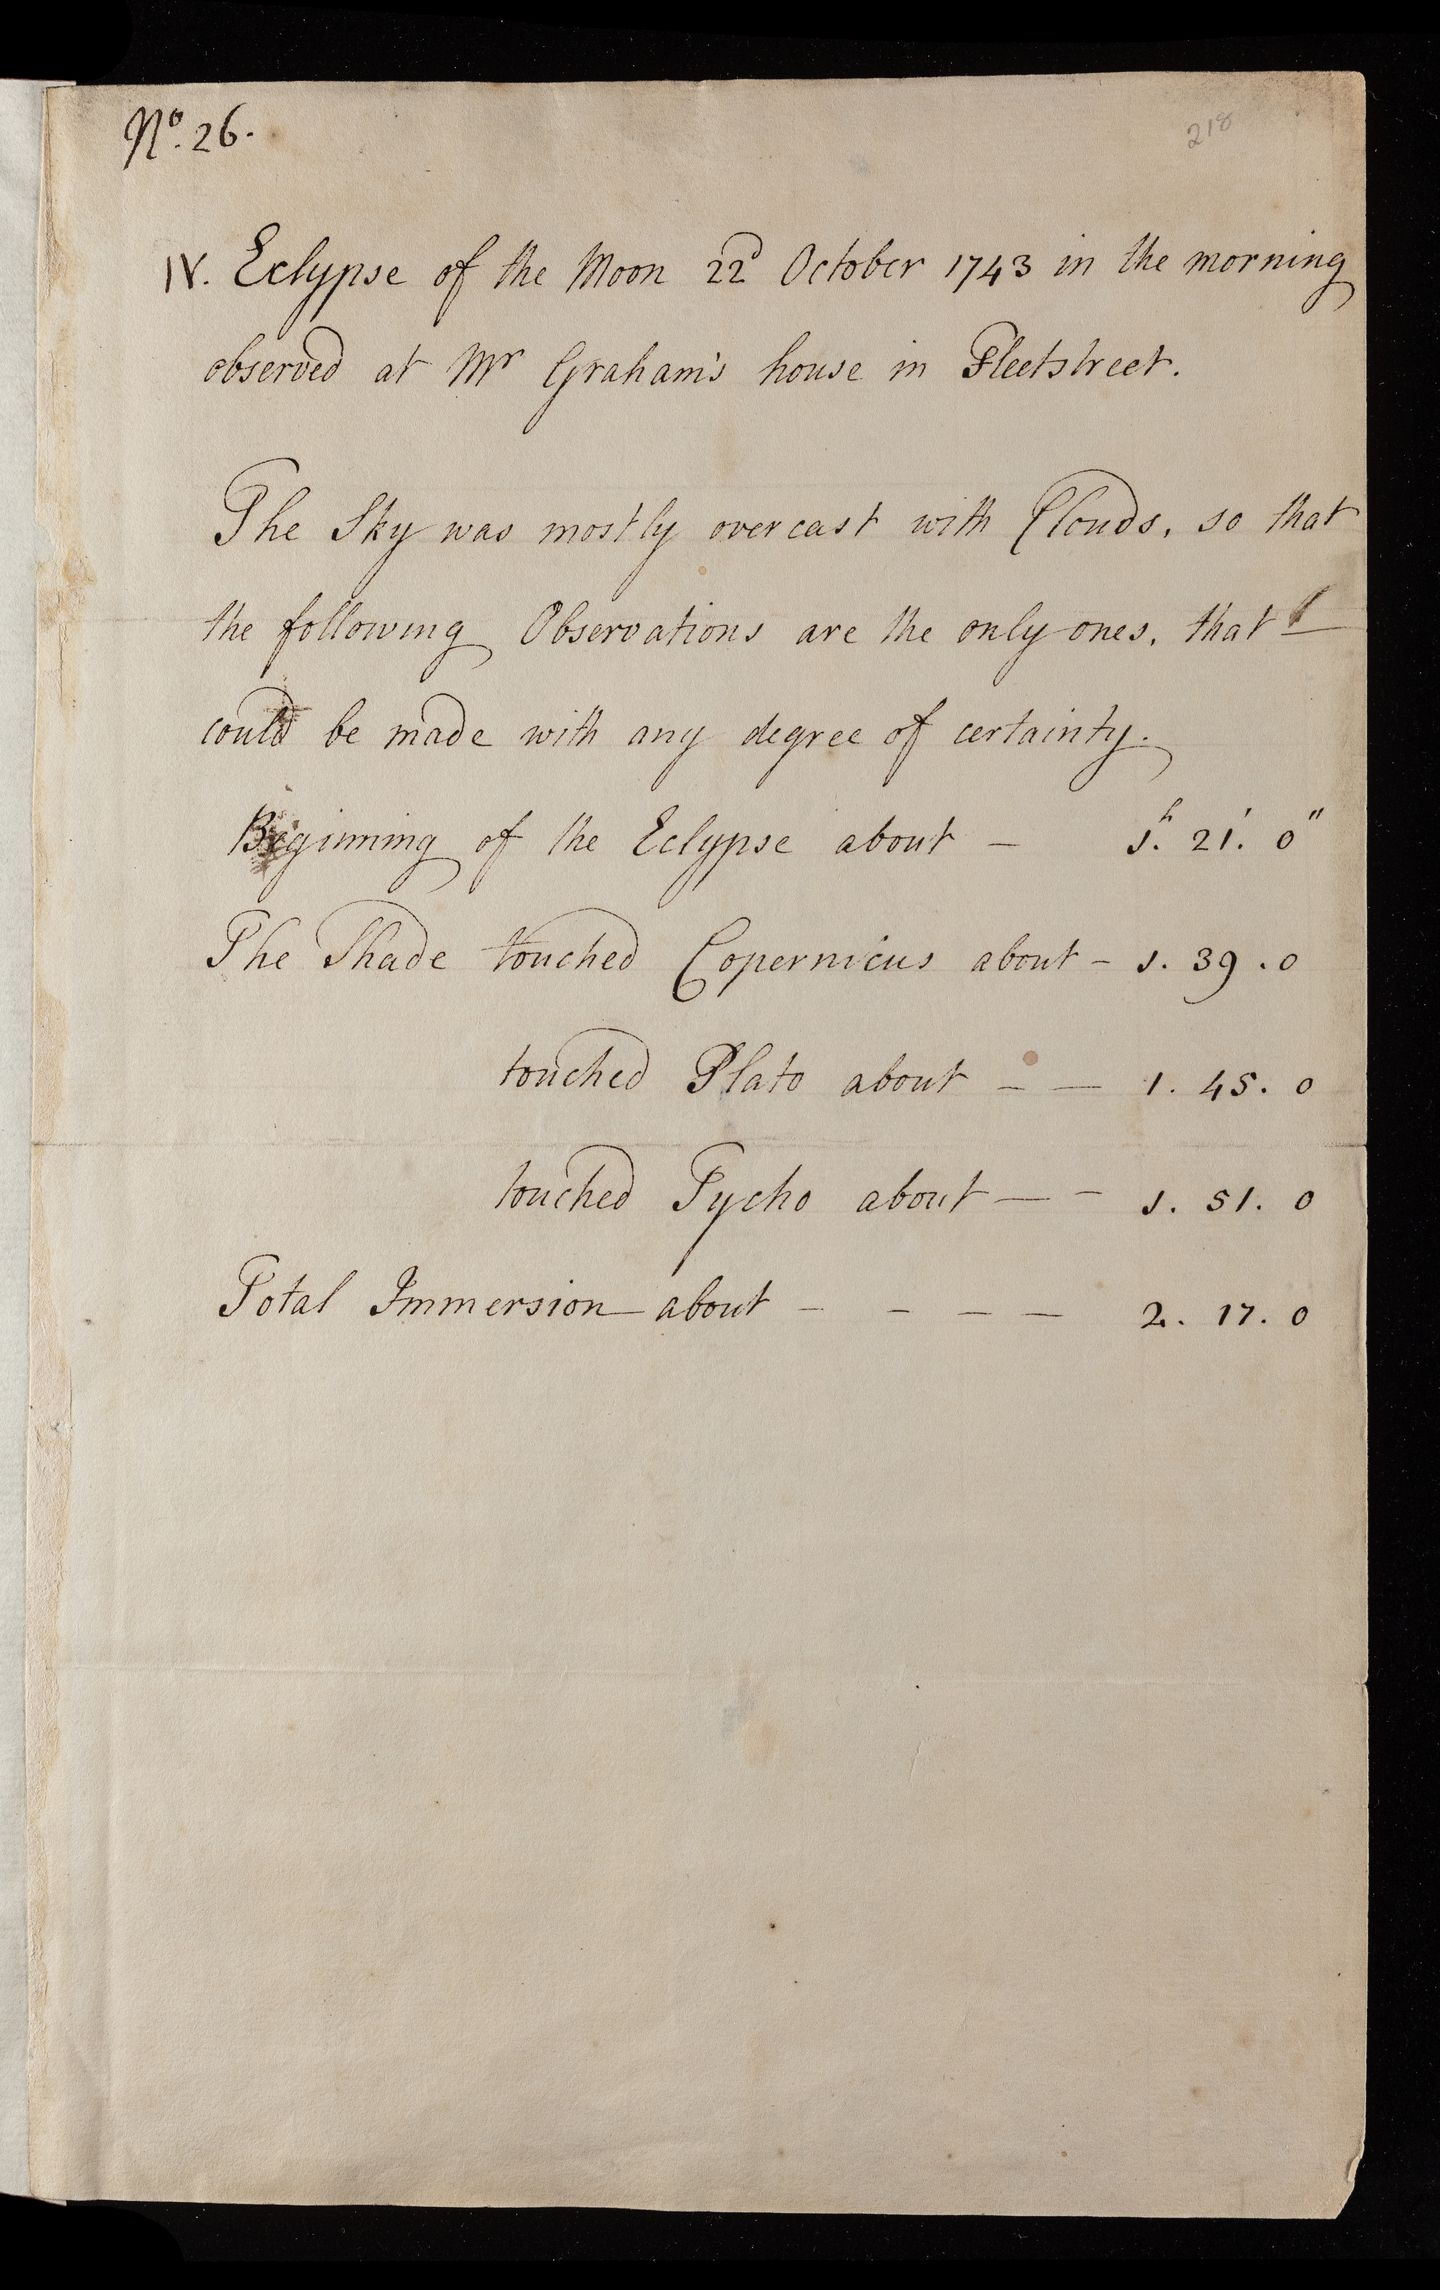 No. 26.
218
IV. Eclypse of the Moon 22d October 1743 in the morning
observed at Mr Graham's house in Fleetstreet.
The Sky was mostly overcast with Clouds, so that
the following Observations are the only ones, that
could be made with any degree of certainty.
Beginning of the Eclypse about — 1h. 21'. 0"
The Shade touched Copernicus about – 1. 39. 0
touched Plato about – — 1. 45. 0
touched Tycho about — – 1. 51. 0
Total Immersion about – – — — 2. 17. 0